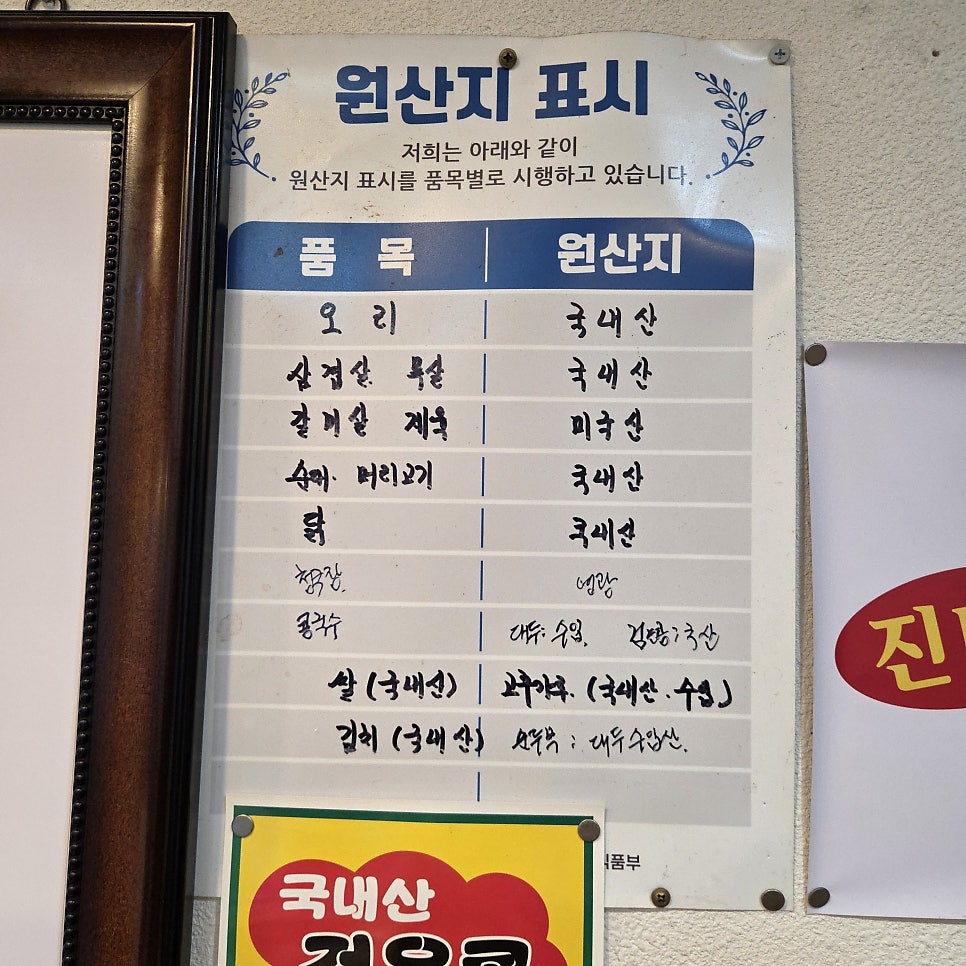 원산지 표시
저희는 아래와 같이
원산지 표시를 품목별로 시행하고 있습니다.
품 목 원산지
오 리 국내산
삼겹살. 목살 국내산
갈비살 제육 미국산
순대. 머리고기 국내산
닭 국내산
청국장. 영광
콩국수 대두: 수입. 검은콩: 국산
쌀 (국내산) 고추가루. (국내산. 수입)
김치 (국내산) 순두부 : 대두 수입산.
식품부
국내산
진